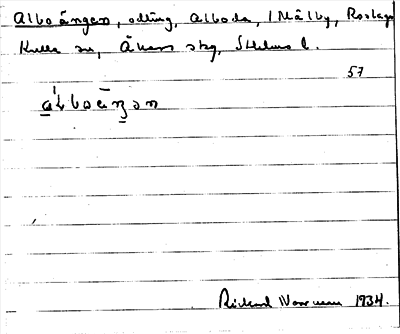 Alboängen, odling, Alboda, 1 Målby, Roslags
Kulla sn, Åkers skg, Sthlms l.
57
a̲ʹlboäŋ̲ən
Rickard Norrman 1934.